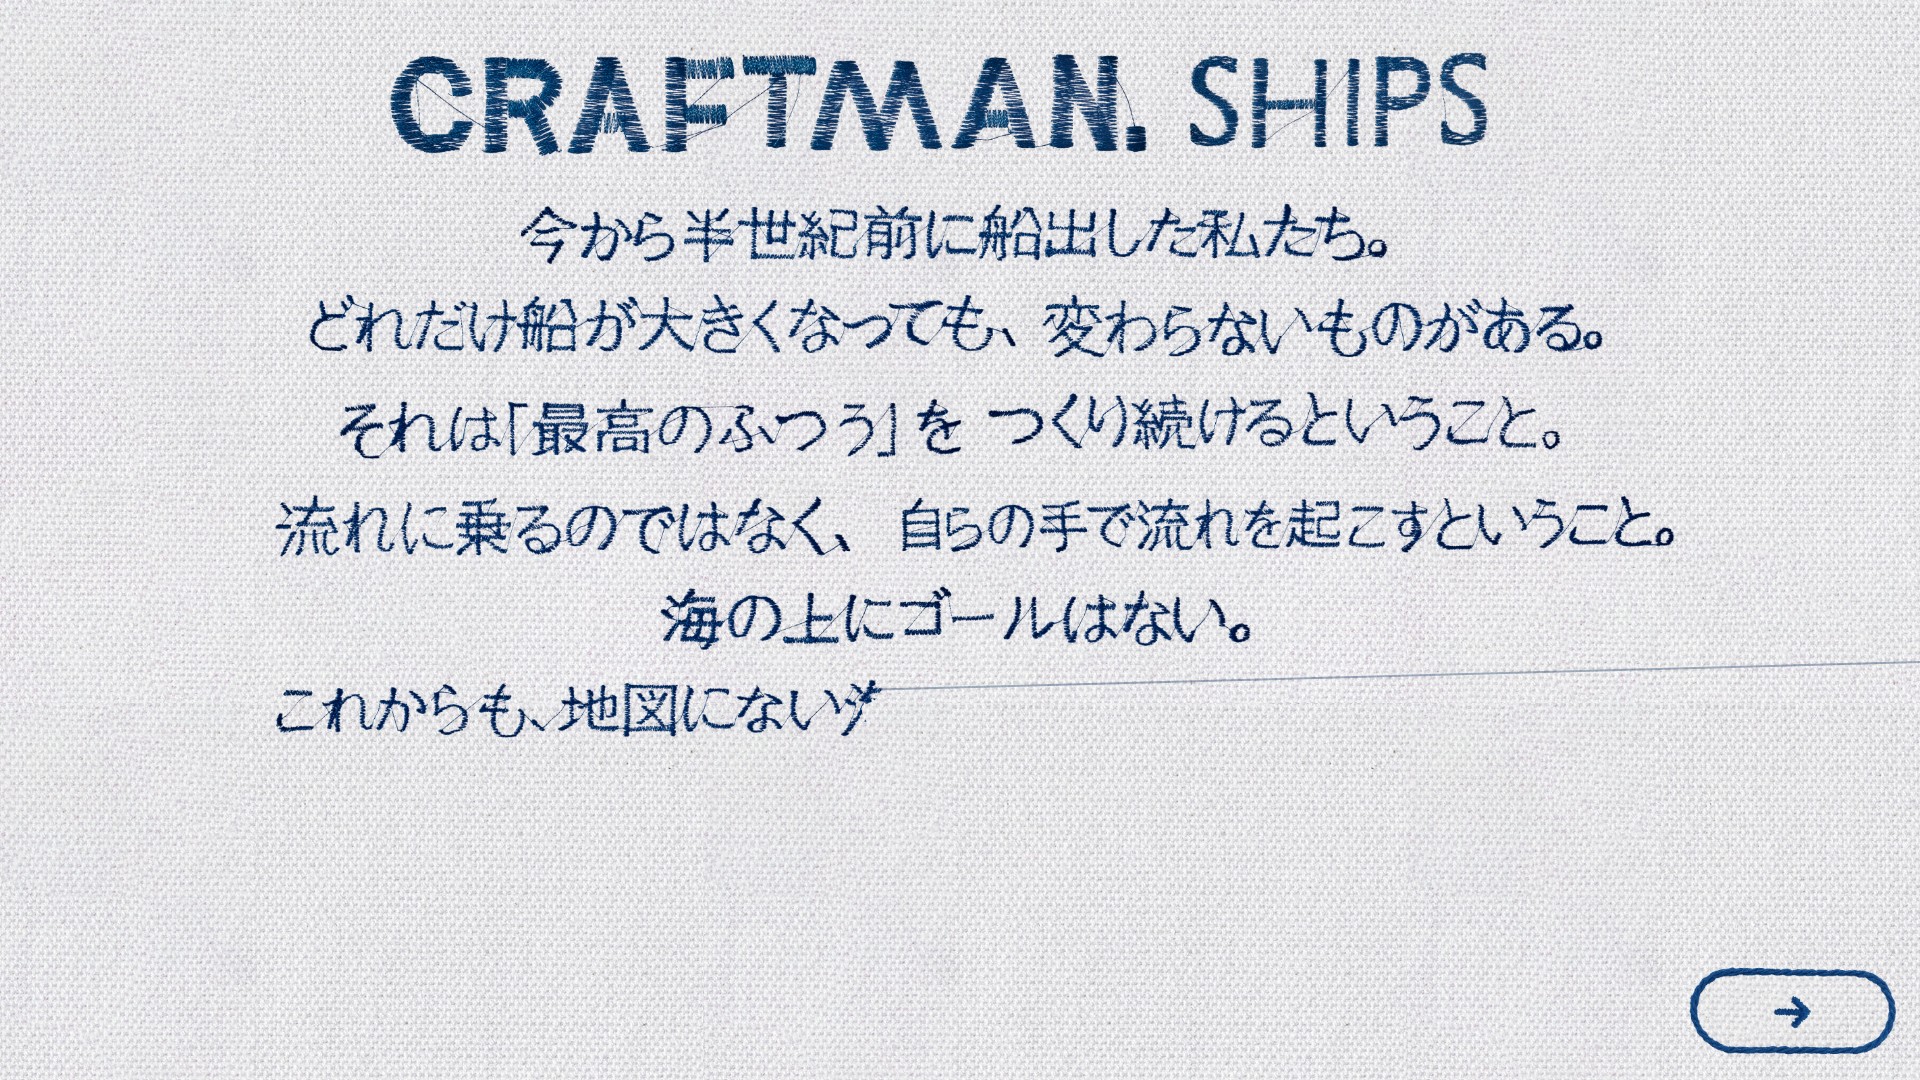 CRAFTMAN. SHIPS
今から半世紀前に船出した私たち。
どれだけ船が大きくなっても、変わらないものがある。
それは「最高のふつう」を つくり続けるということ。
流れに乗るのではなく、 自らの手で流れを起こすということ。
海の上にゴールはない。
これからも、地図にない